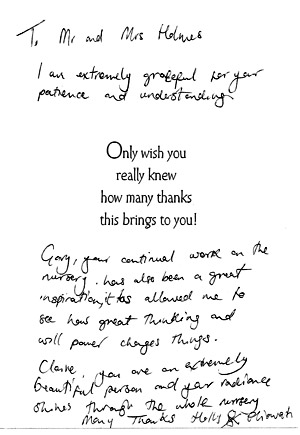 To Mr and Mrs Holmes
I am extremely grateful for your
patience and understanding.
Only wish you
really knew
how many thanks
this brings to you!
Gary, your continual work on the
nursery. has also been a great
inspiration, it has allowed me to
see how great thinking and
will power changes things.
Claire, you are an extremely
beautiful person and your radiance
shines through the whole nursery
Many Thanks Holly &